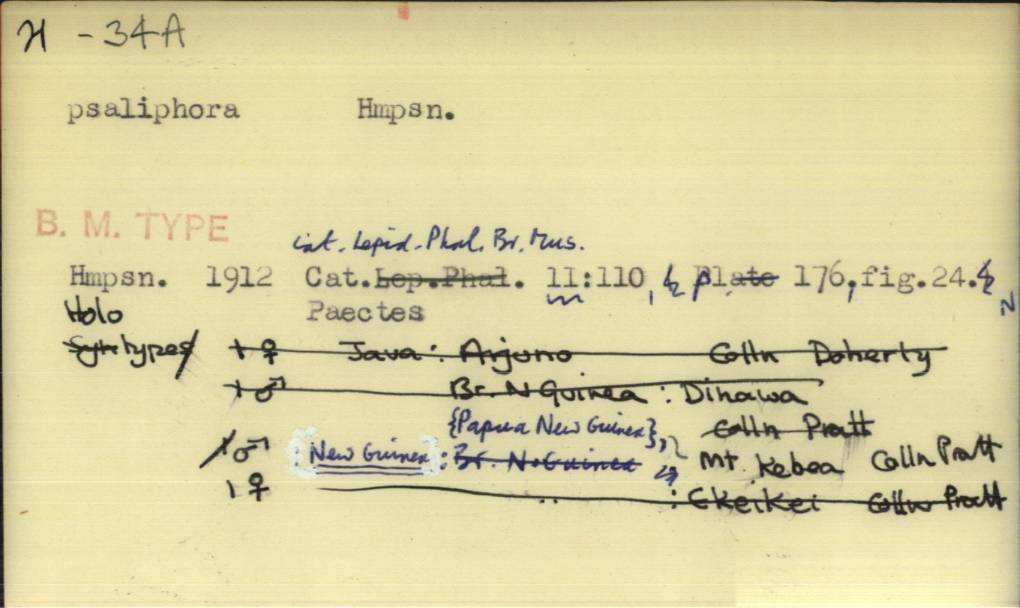 H - 34A
psaliphora Hmpsn.
B. M. TYPE
Cat. Lepid. Phal. Br. Mus.
Hmpsn. 1912 Cat. Lep. Phal. 11:110, plate 176, fig. 24.
Holo Paectes
Syntypes 1 ♀ Java: Arjuno Colln Doherty
1 ♂ Br. N Guinea: Dinawa
{Papua New Guinea}, Colln Pratt
1 ♂ [New Guinea]: Br. N. Guinea Mt. Kebea Colln Pratt
1 ♀ .. : Ekeikei Colln Pratt